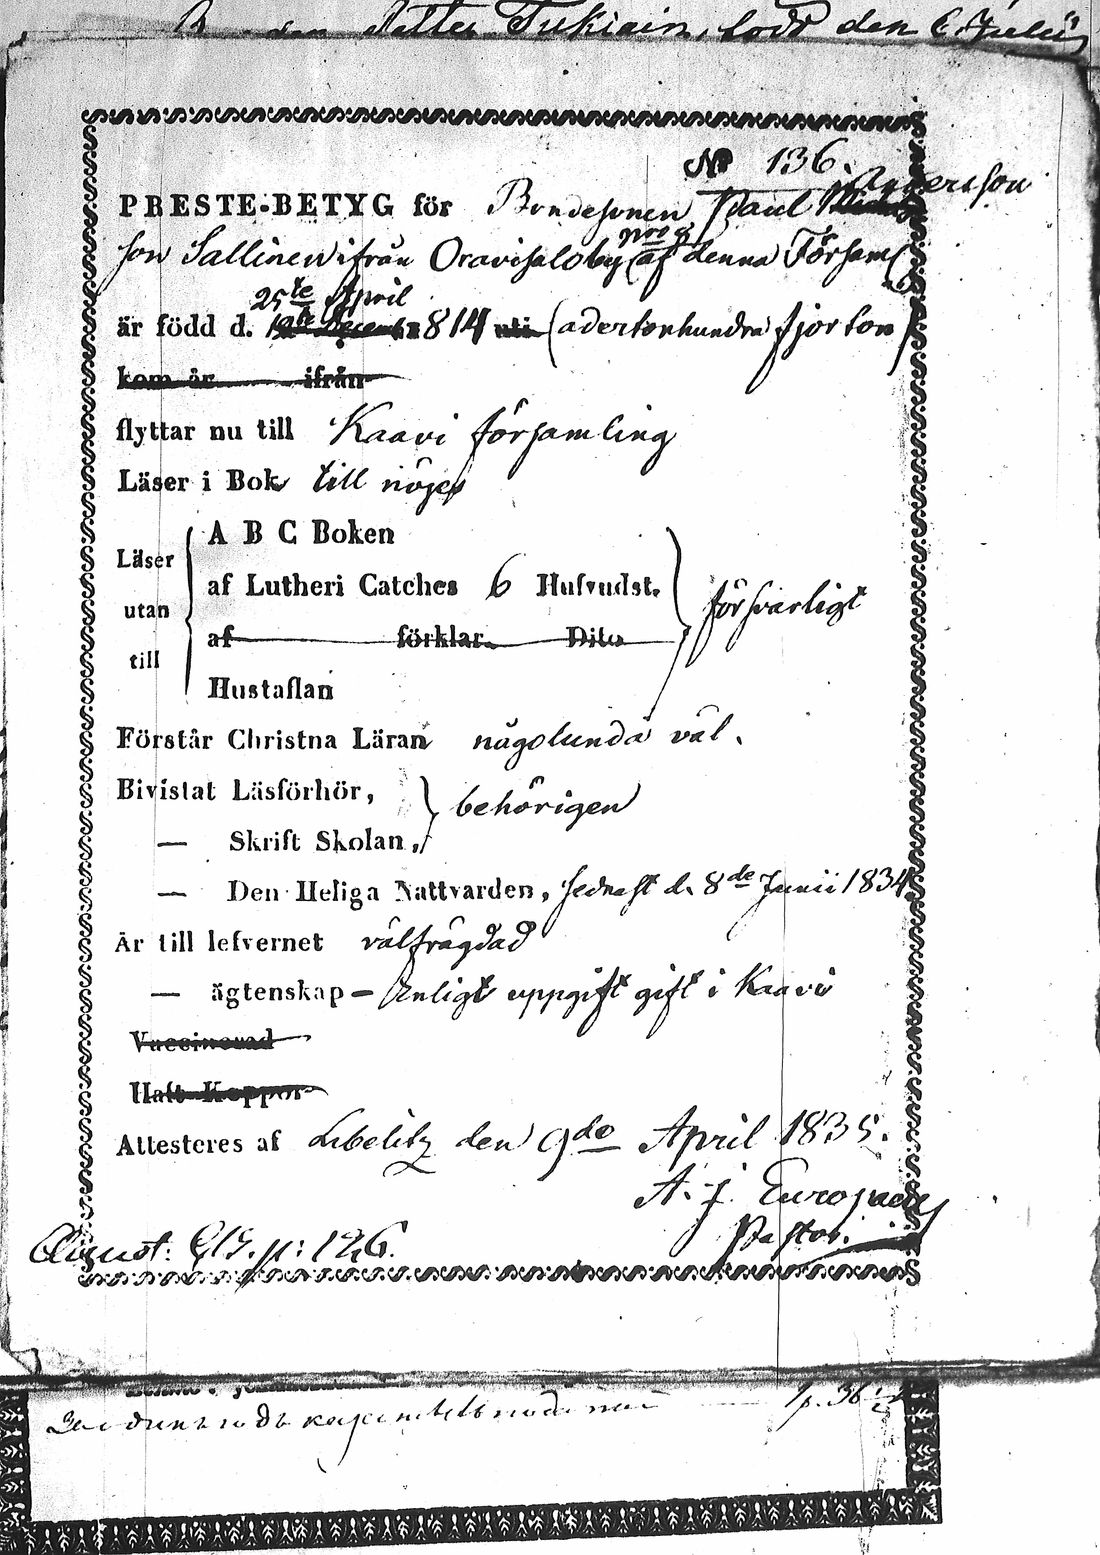 den Petter Tukiain, född den 6 Julii
No 136.
Andersson
PRESTE-BETYG för Bondesonen Paul
son Sallinen ifrån Oravisalo by N:o 9 (af denna Församl.)
25te April
är född d. 19de Decemb. 1814 (adertonhundra fjorton)
kom år ifrån
flyttar nu till Kaavi församling
Läser i Bok till nöjes
Läser utan till
A B C Boken
af Lutheri Catches 6 Hufvudst. försvarligt
af förklar. Dito
Hustaflan
Förstår Christna Läran någolunda väl.
Bivistat Läsförhör,
— Skrift Skolan, behörigen
— Den Heliga Nattvarden, sednast d. 8de Junii 1834
Är till lefvernet välfrägdad
— ägtenskap – Enligt uppgift gift i Kaavi
Vaccinerad
Haft Koppor
Attesteres af Libelitz den 9de April 1835.
A. J. Europaeus
Pastor.
p: 126.